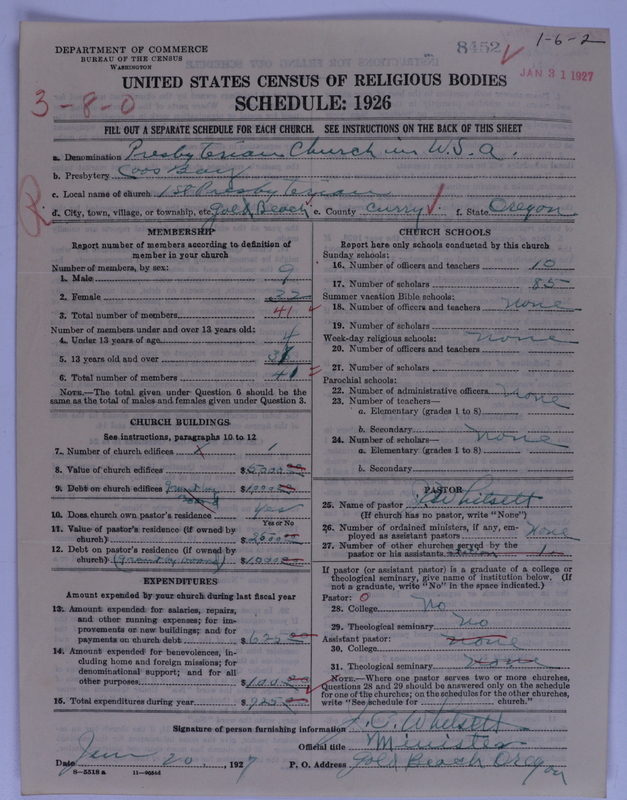 DEPARTMENT OF COMMERCE
BUREAU OF THE CENSUS
WASHINGTON
8452
1-6-2
JAN 31 1927
UNITED STATES CENSUS OF RELIGIOUS BODIES
3-8-0
SCHEDULE: 1926
FILL OUT A SEPARATE SCHEDULE FOR EACH CHURCH. SEE INSTRUCTIONS ON THE BACK OF THIS SHEET
a. Denomination Presbyterian Church in U.S.A.
b. Presbytery Coos Bay
c. Local name of church 1st Presbyterian
d. City, town, village, or township, etc. Gold Beach e. County Curry f. State Oregon
MEMBERSHIP
Report number of members according to definition of
member in your church
Number of members, by sex:
1. Male 9
2. Female 32
3. Total number of members 41
Number of members under and over 13 years old:
4. Under 13 years of age 4
5. 13 years old and over
6. Total number of members 41
NOTE.—The total given under Question 6 should be
same as the total of males and females given under Question 3.
CHURCH BUILDINGS
See instructions, paragraphs 10 to 12
7. Number of church edifices 1
8. Value of church edifices $5000.00
9. Debt on church edifices $1000.00
10. Does church own pastor's residence Yes
Yes or No
11. Value of pastor's residence (if owned by
church) $2500.00
12. Debt on pastor's residence (if owned by
church) $1000.00
EXPENDITURES
Amount expended by your church during last fiscal year
13. Amount expended for salaries, repairs,
and other running expenses; for im-
provements or new buildings; and for
payments on church debt $
14. Amount expended for benevolences, in-
cluding home and foreign missions; for
denominational support; and for all
other purposes $100.00
15. Total expenditures during year $925.00
CHURCH SCHOOLS
Report here only schools conducted by this church
Sunday schools:
16. Number of officers and teachers 10
17. Number of scholars 85
Summer vacation Bible schools:
18. Number of officers and teachers none
19. Number of scholars
Week-day religious schools: none
20. Number of officers and teachers
21. Number of scholars
Parochial schools:
22. Number of administrative officers None
23. Number of teachers—
a. Elementary (grades 1 to 8)
b. Secondary
24. Number of scholars— none
a. Elementary (grades 1 to 8)
b. Secondary
PASTOR
25. Name of pastor Whitsett
(If church has no pastor, write "None")
26. Number of ordained ministers, if any, em-
ployed as assistant pastors None
27. Number of other churches served by the
pastor or his assistants 1
If pastor (or assistant pastor) is a graduate of a college or
theological seminary, give name of institution below. (If
not a graduate, write "No" in the space indicated.)
Pastor: 0
28. College No
29. Theological seminary No
Assistant pastor:
30. College None
31. Theological seminary None
NOTE.—Where one pastor serves two or more churches,
Questions 28 and 29 should be answered only on the schedule
for one of the churches; on the schedules for the other churches,
write "See schedule for church."
Signature of person furnishing information Whitsett
Official title Minister
Date Jan 20, 1927 P. O. Address Gold Beach Oregon
8-5518 a